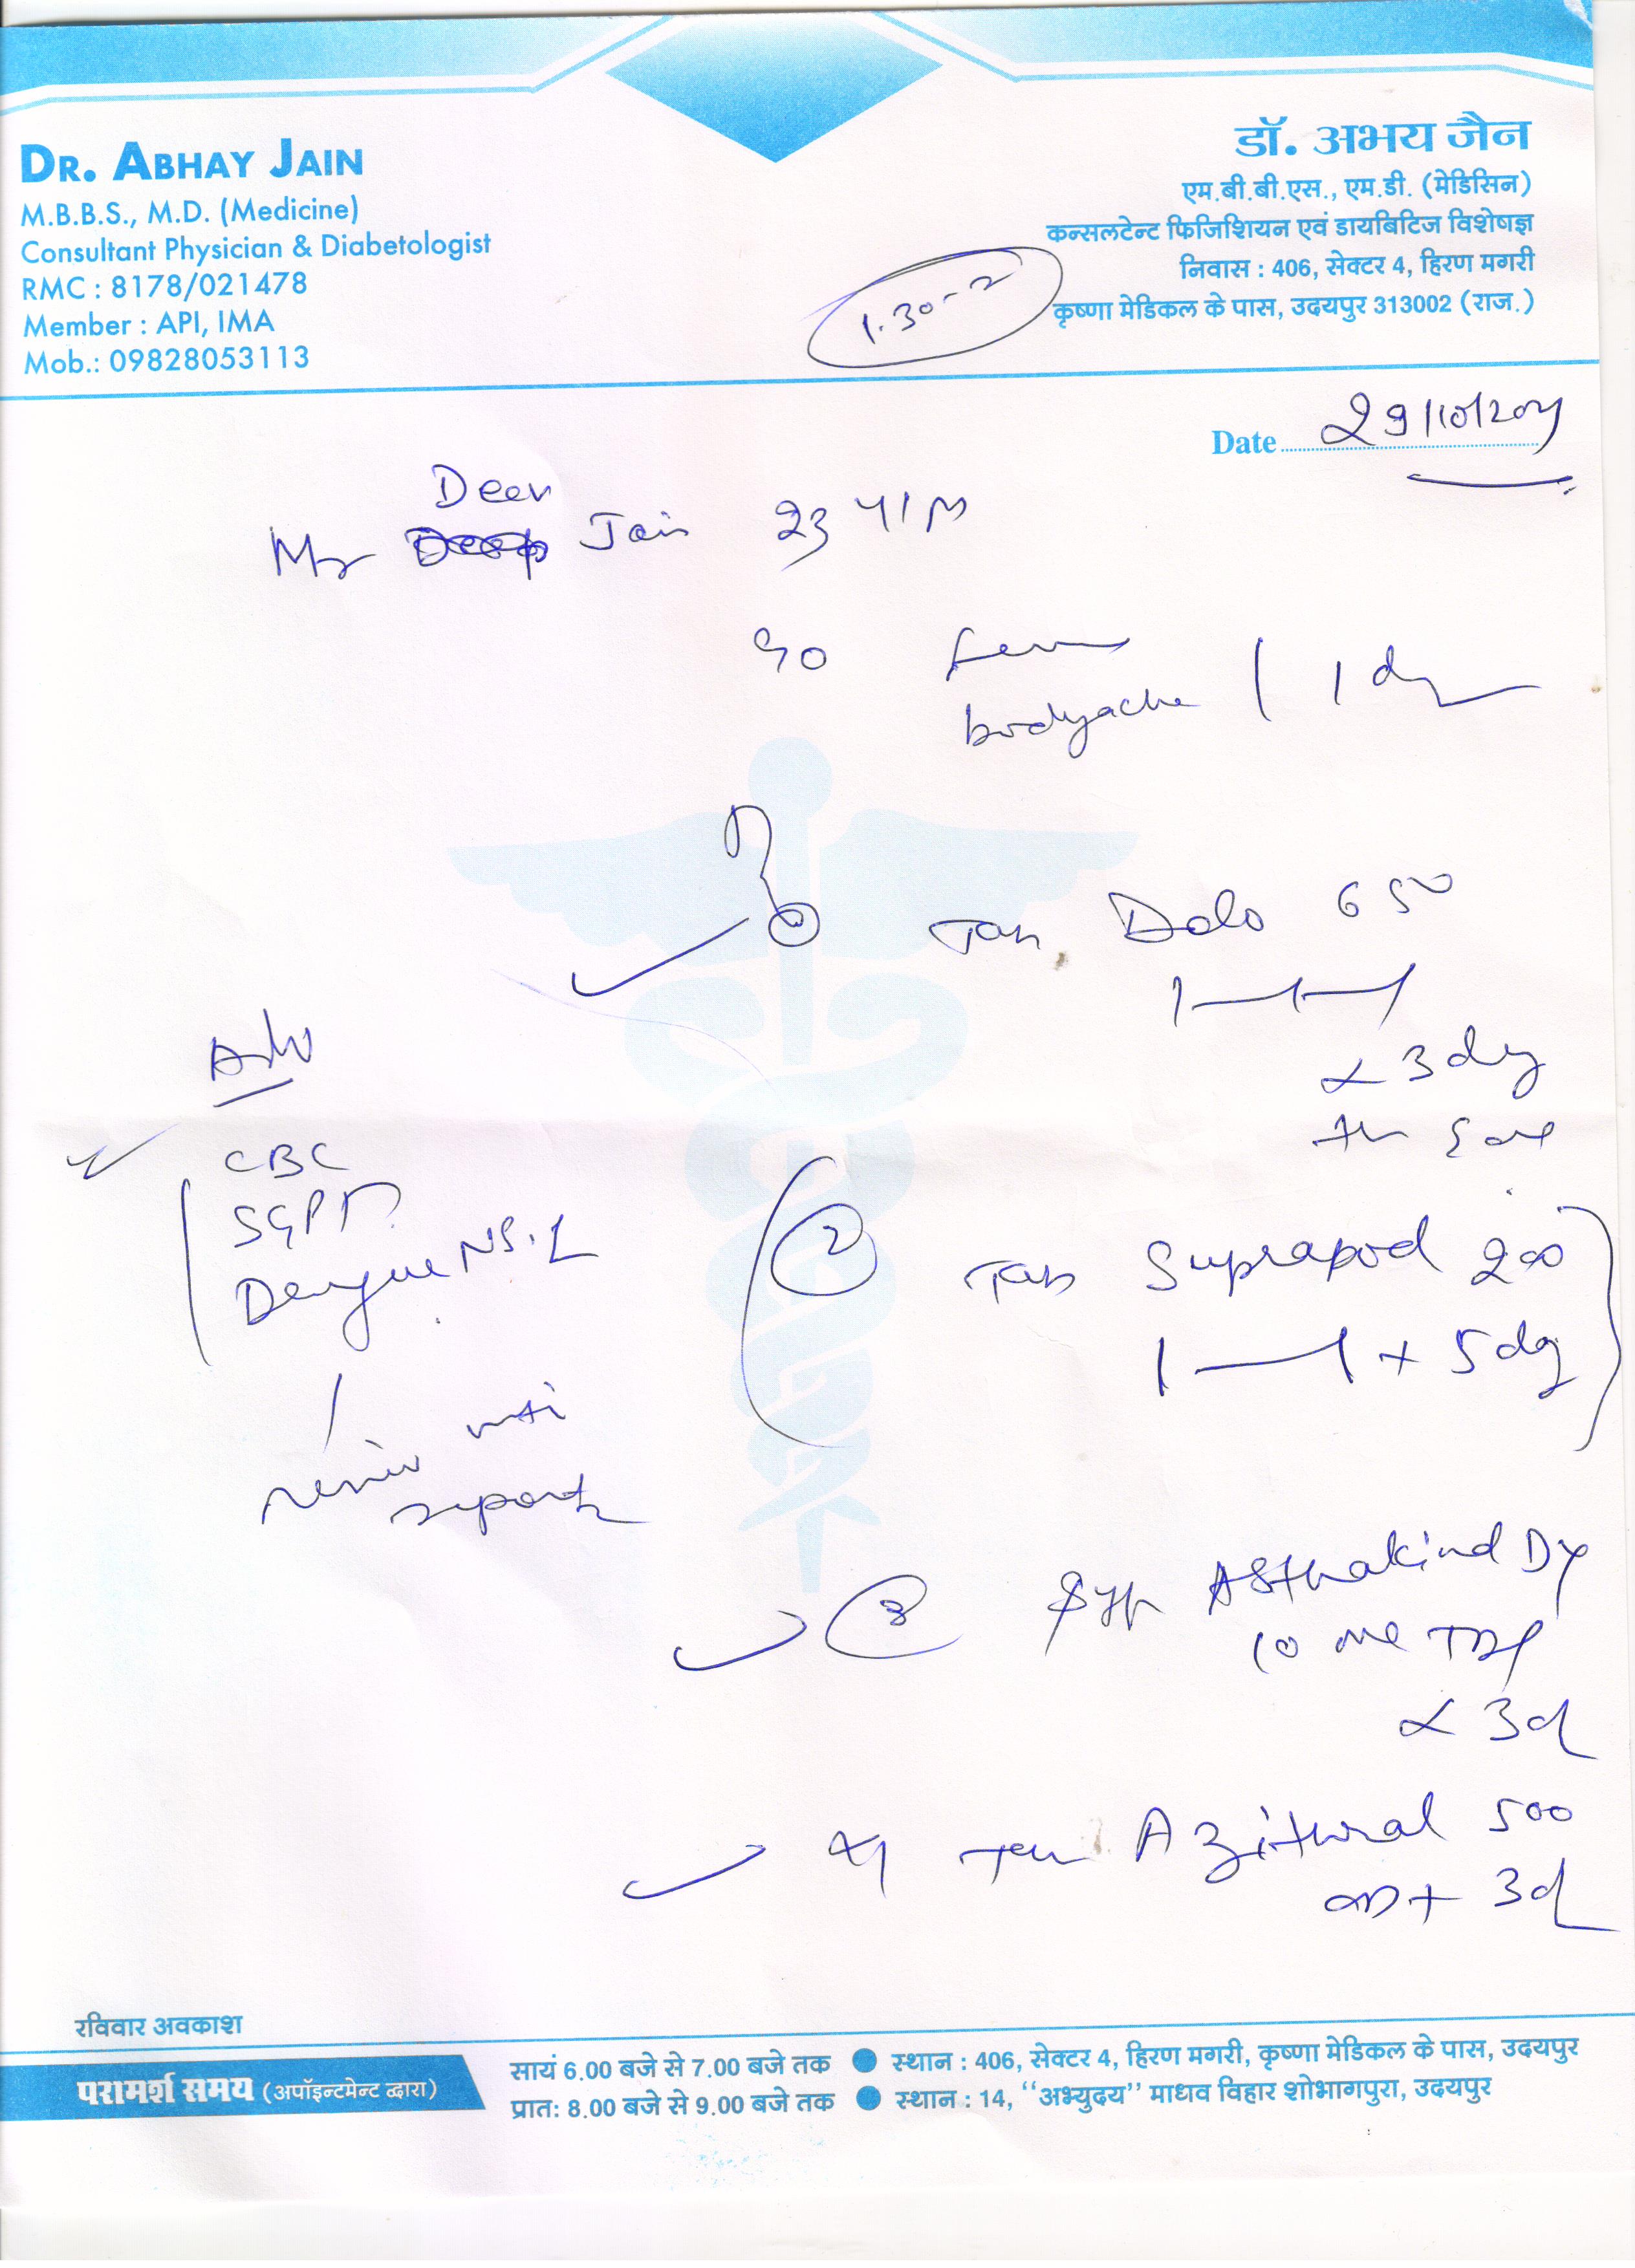 DR. ABHAY JAIN
M.B.B.S., M.D. (Medicine)
Consultant Physician & Diabetologist
RMC : 8178/021478
Member : API, IMA
Mob.: 09828053113
डॉ. अभय जैन
एम.बी.बी.एस., एम.डी. (मेडिसिन)
कन्सलटेन्ट फिजिशियन एवं डायबिटिज विशेषज्ञ
निवास : 406, सेक्टर 4, हिरण मगरी
कृष्णा मेडिकल के पास, उदयपुर 313002 (राज.)
1.30-2
Date 29/10/
Mr Jain 23 Y/M
bodyache / 1 day
Tab Dolo 650
x 3 day
CBC
SGPT
Dengue NS.1
review with
reports
2 Tab 200
1-1 x 5 day
3 Syp Asthakind Dx
10 ml TDS
x 3d
4 Tab Azithral 500
OD x 3d
रविवार अवकाश
परामर्श समय (अपॉइन्टमेन्ट द्वारा)
सायं 6.00 बजे से 7.00 बजे तक ● स्थान : 406, सेक्टर 4, हिरण मगरी, कृष्णा मेडिकल के पास, उदयपुर
प्रातः 8.00 बजे से 9.00 बजे तक ● स्थान : 14, "अभ्युदय" माधव विहार शोभागपुरा, उदयपुर